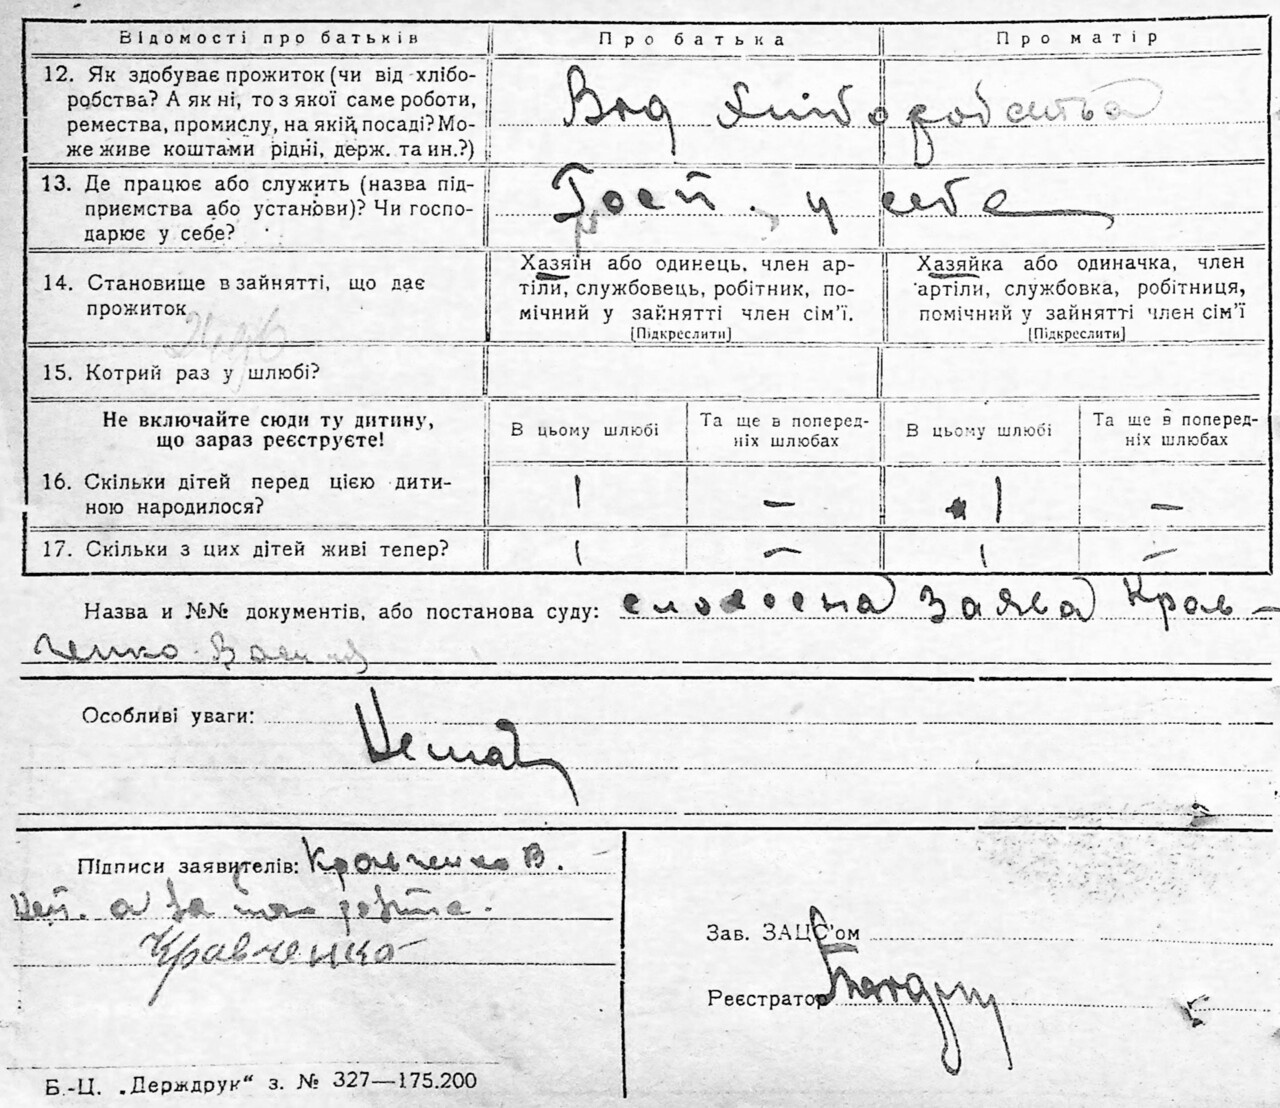 Відомості про батьків Про батька Про матір
12. Як здобуває прожиток (чи від хлібо-
робства? А як ні, то з якої саме роботи,
ремества, промислу, на якій посаді? Мо-
же живе коштами рідні, держ. та ин.?)
Від хліборобства
13. Де працює або служить (назва під-
приємства або установи)? Чи госпо-
дарює у себе?
Госп. у себе
14. Становище в зайнятті, що дає
прожиток
Хазяїн або одинець, член ар-
тіли, службовець, робітник, по-
мічний у зайнятті член сім'ї.
[Підкреслити]
Хазяйка або одиначка, член
артіли, службовка, робітниця,
помічний у зайнятті член сім'ї
[Підкреслити]
15. Котрий раз у шлюбі?
Не включайте сюди ту дитину,
що зараз реєструєте!
В цьому шлюбі
Та ще в поперед-
ніх шлюбах
В цьому шлюбі
Та ще в поперед-
ніх шлюбах
16. Скільки дітей перед цією дити-
ною народилося?
1 — 1 —
17. Скільки з цих дітей живі тепер?
1 — 1 —
Назва и №№ документів, або постанова суду: словесна заява Крав-
ченко
Особливі уваги:
Немає
Підписи заявителів: Кравченко В.
а за
Кравченко
Зав. ЗАЦС'ом
Реєстратор
Б.-Ц. „Держдрук“ з. № 327—175.200